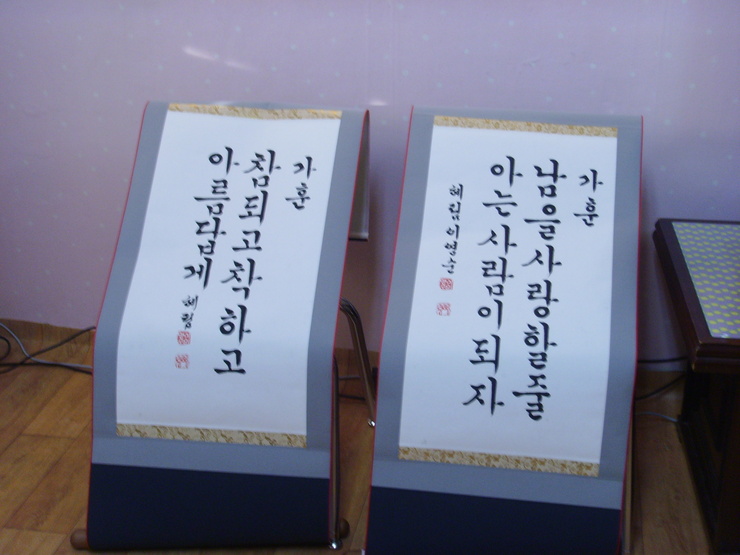 가훈
참되고착하고
아름답게
혜림
가훈
남을사랑할줄
아는사람이되자
혜림이영순